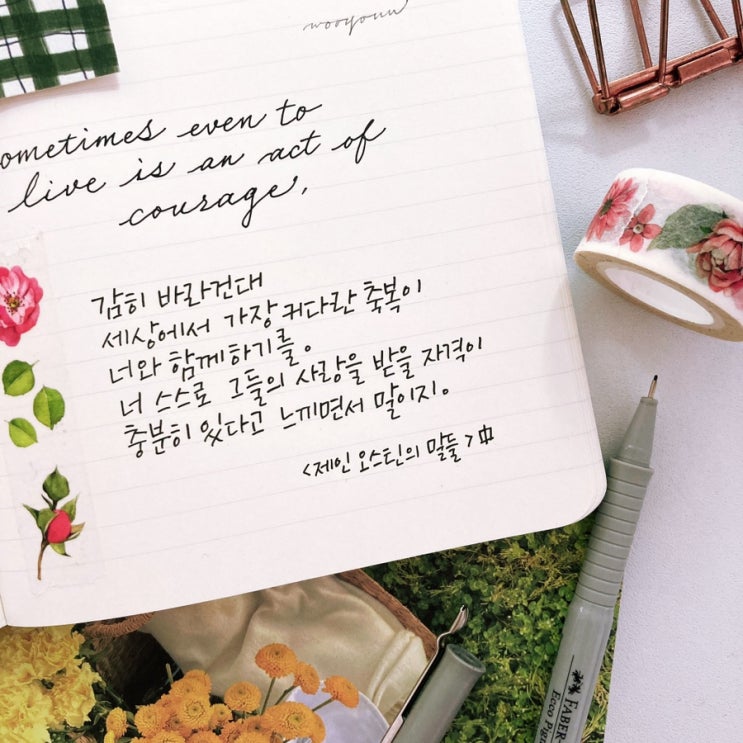 wooyouu
ometimes even to
live is an act of
courage,
감히 바라건대
세상에서 가장 커다란 축복이
너와 함께하기를。
너 스스로 그들의 사랑을 받을 자격이
충분히 있다고 느끼면서 말이지。
<제인 오스틴의 말들> 中
FABER
Ecco Pig